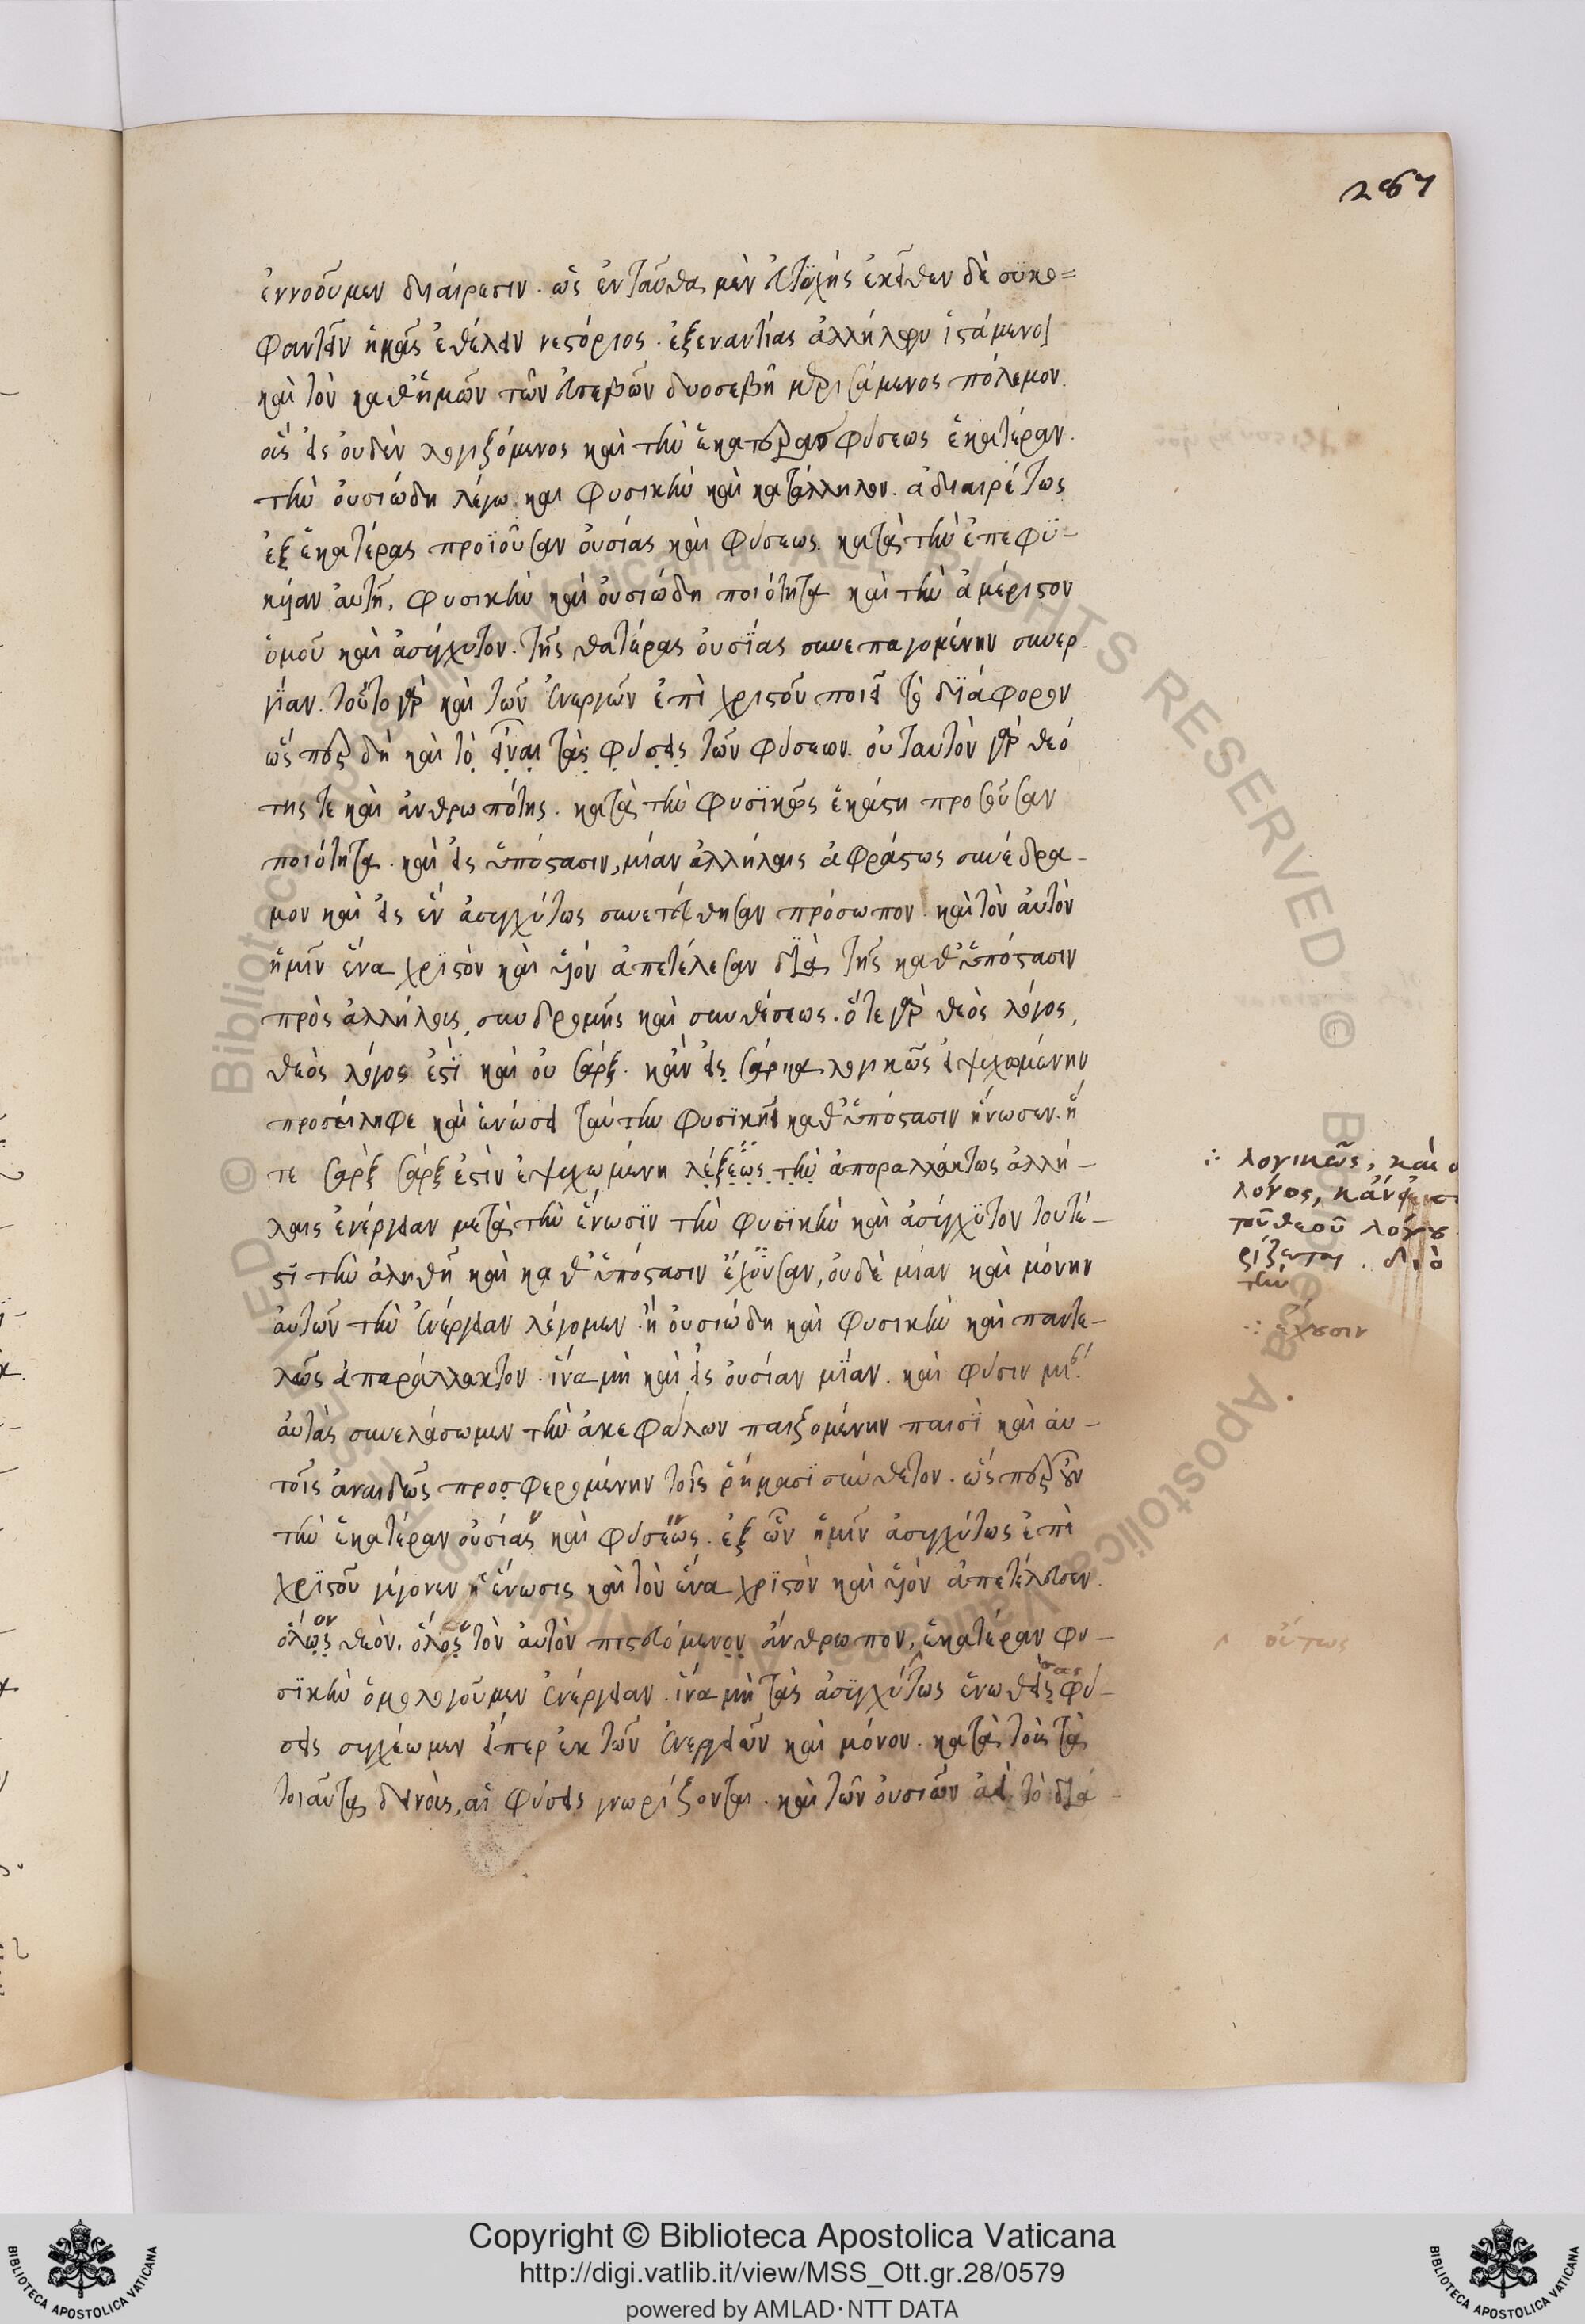 267
ἐννοοῦμεν διαίρεσιν. ὡς ἐνταῦθα μὲν εὐτυχὴς ἐκεῖθεν δὲ συκο=
φαντεῖν ἡμᾶς ἐθέλειν νεστόριος. ἐξεναντίας ἀλλήλων ἱστάμενοι
καὶ τὸν καθ' ἡμῶν τῶν εὐσεβῶν δυσσεβῆ μεριζάμενος πόλεμον.
οἷς εἰς οὐδὲν λογιζόμενος καὶ τὴν ἑκατέρας φύσεως ἑκατέραν.
τὴν οὐσιώδη λέγω καὶ φυσικὴν καὶ κατάλληλον. ἀδιαιρέτως
ἐξ ἑκατέρας προϊοῦσαν οὐσίας καὶ φύσεως. κατὰ τὴν ἐπεφυ-
κυῖαν αὐτῇ, φυσικὴν καὶ οὐσιώδη ποιότητα καὶ τὴν ἀμέριστον
ὁμοῦ καὶ ἀσύγχυτον. τῆς θατέρας οὐσίας συνεπαγομένην συνερ-
γίαν. τοῦτο γὰρ καὶ τῶν ἐνεργῶν ἐπὶ χριστοῦ ποιεῖ τὸ διάφορον
ὥσπερ δὴ καὶ τὸ εἶναι τὰς φύσεις τῶν φύσεων. οὐ ταυτὸν γὰρ θεό
της τε καὶ ἀνθρωπότης. κατὰ τὴν φυσικῶς ἑκάστῃ προσοῦσαν
ποιότητα. καὶ εἰς ὑπόστασιν, μίαν ἀλλήλαις ἀφράστως συνέδρα-
μον καὶ εἰς ἓν ἀσυγχύτως συνετέθησαν πρόσωπον. καὶ τὸν αὐτὸν
ἡμῖν ἕνα χριστὸν καὶ υἱὸν ἀπετέλεσαν διὰ τῆς καθ' ὑπόστασιν
πρὸς ἀλλήλαις, συνδρομῆς καὶ συνθέσεως. ὅ τε γὰρ θεὸς λόγος,
θεὸς λόγος ἐστὶ καὶ οὐ σάρξ. κἂν εἰς σάρκα λογικῶς ἐψυχωμένην
προσείληφε καὶ ἑνώσει ταύτην φυσικῇ καθ' ὑπόστασιν ἥνωσεν. ἥ
τε σὰρξ σάρξ ἐστιν ἐψυχωμένη λέξεως τὴν ἀπαραλλάκτως ἀλλή-
λαις ἐνέργειαν μετὰ τὴν ἕνωσιν τὴν φυσικὴν καὶ ἀσύγχυτον τουτέ-
στι τὴν ἀληθῆ καὶ καθ' ὑπόστασιν ἔχουσαν, οὐδὲ μίαν καὶ μόνην
αὐτῶν τὴν ἐνέργειαν λέγομεν. ἢ οὐσιώδη καὶ φυσικὴν καὶ παντε-
λῶς ἀπαράλλακτον. ἵνα μὴ καὶ εἰς οὐσίαν μίαν. καὶ φύσιν μί
αὐτὰς συνελάσωμεν τὴν ἀκεφάλων παιζομένην παισὶ καὶ αὐ-
τοῖς ἀναιδῶς προσφερομένην τοῖς ῥήμασι σύνθετον. ὥσπερ οὖν
τὴν ἑκατέραν οὐσίας καὶ φύσεως. ἐξ ὧν ἡμῖν ἀσυγχύτως ἐπὶ
χριστοῦ γέγονεν ἡ ἕνωσις καὶ τὸν ἕνα χριστὸν καὶ υἱὸν ἀπετέλεσεν.
ὅλως θεὸν, ὅλος τὸν αὐτὸν πιστευόμενον ἄνθρωπον, ἑκατέραν φυ-
σικὴν ὁμολογοῦμεν ἐνέργειαν. ἵνα μὴ τὰς ἀσυγχύτως ἑνωθείσας φύ-
σεις συγχέωμεν εἴπερ ἐκ τῶν ἐνεργειῶν καὶ μόνον. κατὰ τοὺς τὰ
τοιαῦτα δεινοὺς, αἱ φύσεις γνωρίζονται. καὶ τῶν οὐσιῶν ἀεὶ τὸ διά
∴ λογικῶς, καὶ
λόγος, κἂν
τοῦ θεοῦ λόγου
ρίζεται. διὸ
τὴν
∴ ἔχουσιν
^ οὕτως
Copyright © Biblioteca Apostolica Vaticana
http://digi.vatlib.it/view/MSS_Ott.gr.28/0579
powered by AMLAD·NTT DATA